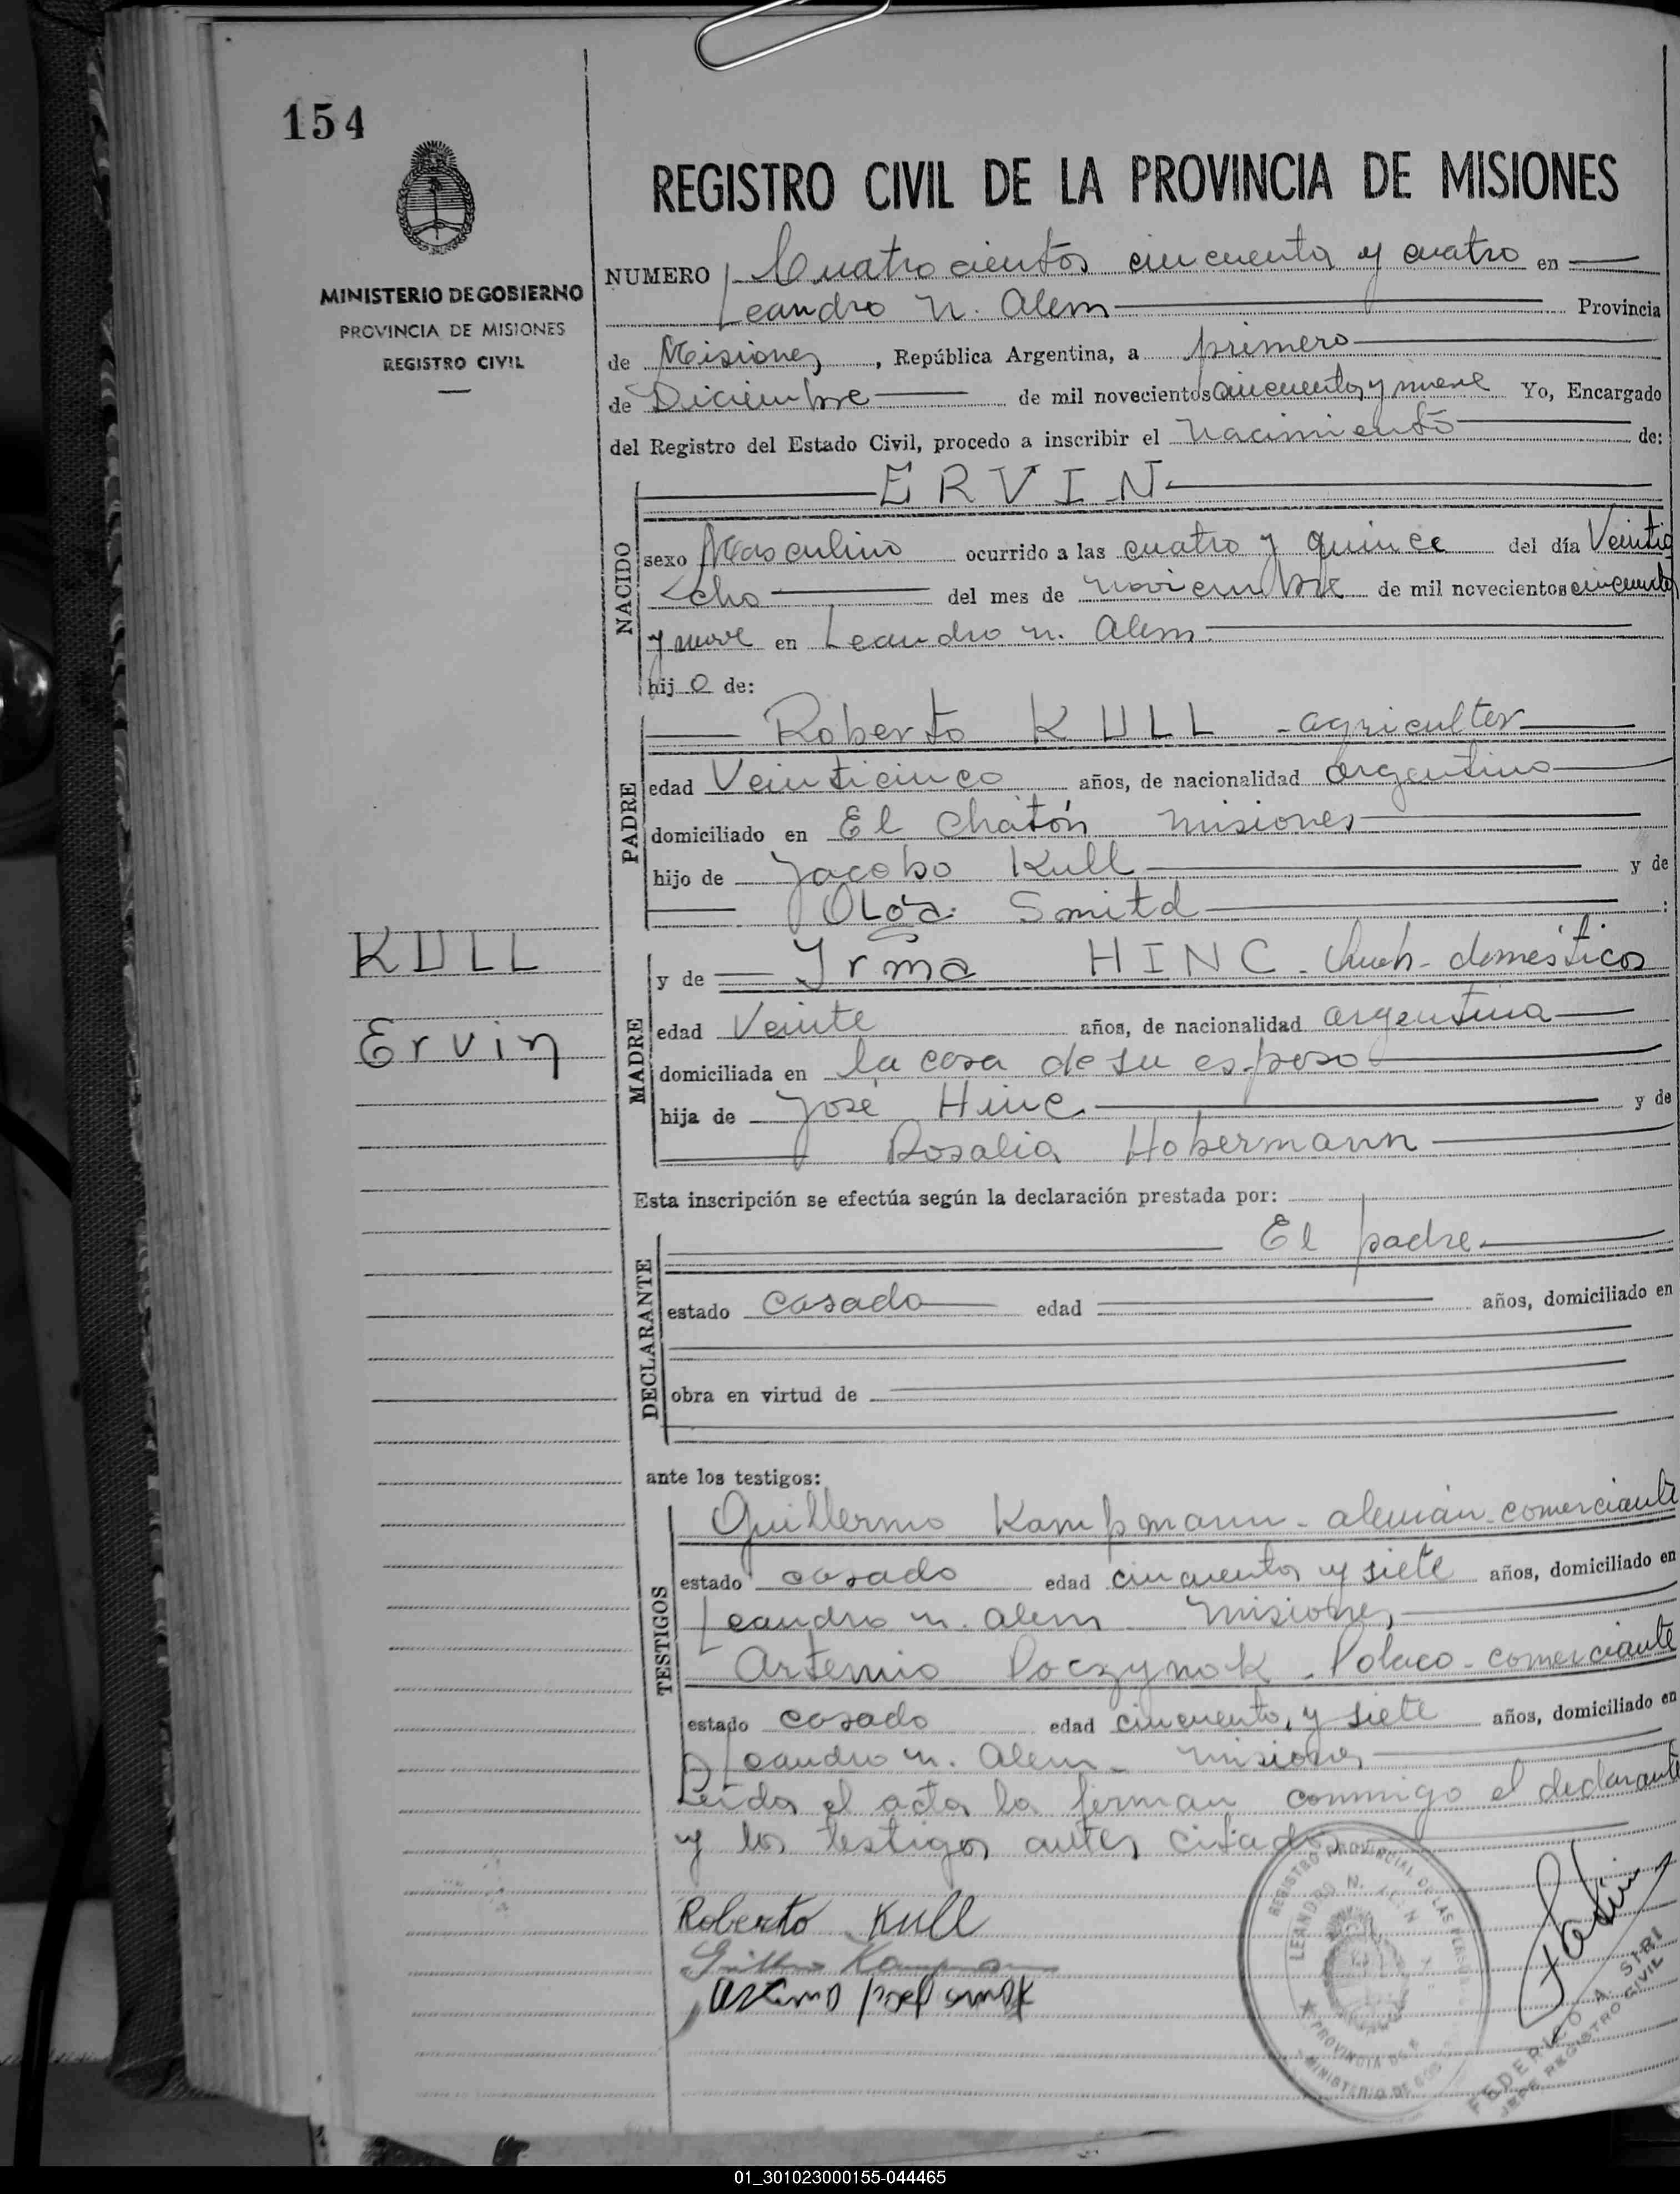 154
MINISTERIO DE GOBIERNO
PROVINCIA DE MISIONES
REGISTRO CIVIL
REGISTRO CIVIL DE LA PROVINCIA DE MISIONES
NUMERO Cuatrocientos cincuenta y cuatro en
Leandro N. Alem Provincia
de Misiones, República Argentina, a primero
de Diciembre de mil novecientos cincuenta y nueve Yo, Encargado
del Registro del Estado Civil, procedo a inscribir el nacimiento de:
ERVIN
NACIDO
sexo Masculino ocurrido a las cuatro y quince del día Veintio
cho del mes de noviembre de mil novecientos cincuenta
y nueve en Leandro N. Alem
hijo de:
PADRE
Roberto KULL - agricultor
edad Veinticinco años, de nacionalidad argentino
domiciliado en El Chatón Misiones
hijo de Jacobo Kull y de
Olga Smitd :
KULL
Ervin
MADRE
y de Irma HINC - domésticos
edad Veinte años, de nacionalidad argentina
domiciliada en la casa de su esposo
hija de José Hinc y de
Rosalia Hobermann
Esta inscripción se efectúa según la declaración prestada por:
El padre
DECLARANTE
estado casado edad años, domiciliado en
obra en virtud de
ante los testigos:
TESTIGOS
Guillermo Kampmann - alemán - comerciante
estado casado edad cincuenta y siete años, domiciliado en
Leandro N. Alem Misiones
Artemio Poczynok - Polaco - comerciante
estado casado edad cincuenta y siete años, domiciliado en
Leandro N. Alem - Misiones
Leída el acta la firman conmigo el declarante
y los testigos antes citados
Roberto Kull
REGISTRO PROVINCIAL DE LAS PERSONAS
LEANDRO N. ALEM
PROVINCIA DE
MINISTERIO DE GOB
FEDERICO A. SIRI
JEFE REGISTRO CIVIL
01_301023000155-044465